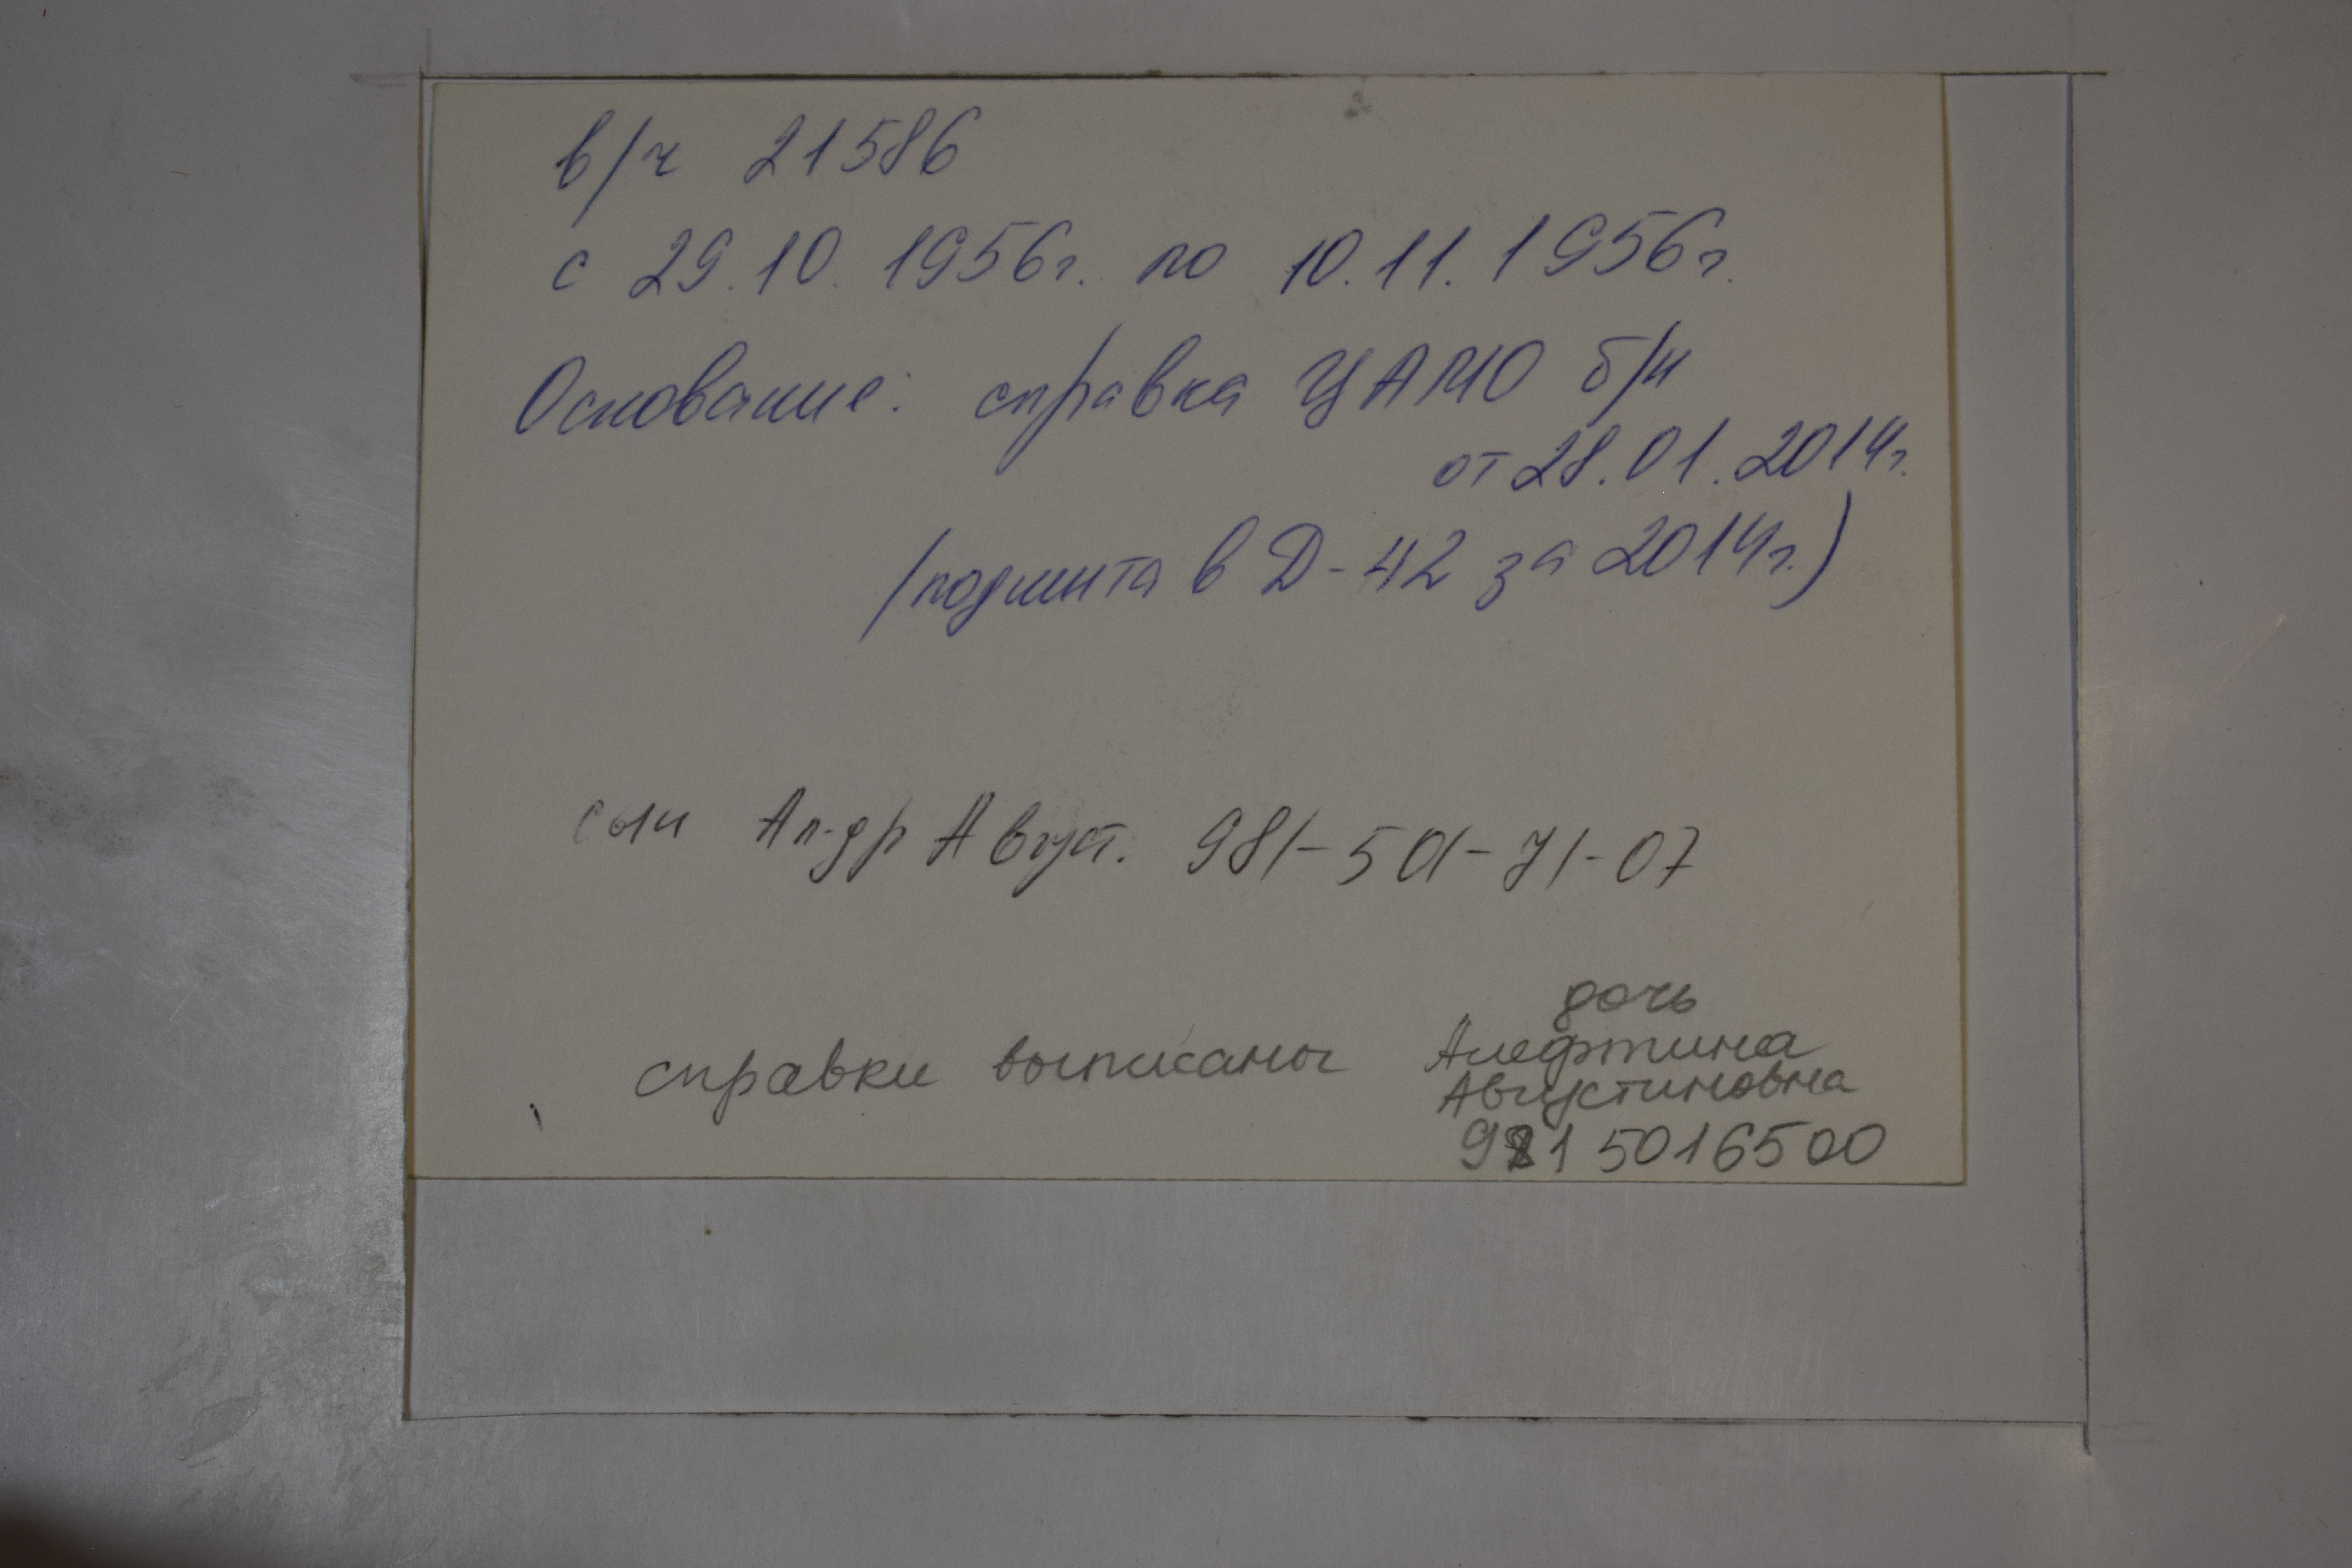 в/ч 21586
с 29.10.1956г. по 10.11.1956г.
Основание: справка ЦАМО б/н
от 28.01.2014г.
/подшита в Д-42 за 2014г.)
сын Ал-др Август. 981-501-71-07
дочь
справки выписаны Алефтина
Августиновна
981 5016500